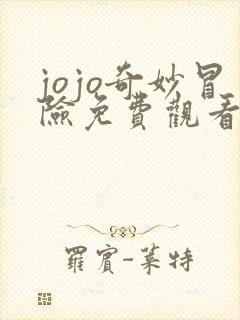 jojo奇妙冒
險免費觀看
羅賓-萊特